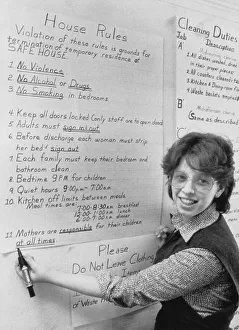 House Rules
Violation of these rules is grounds for
termination of temporary residence at
SAFE HOUSE.
1. No Violence
2. No Alcohol or Drugs
3. No Smoking in bedrooms
4. Keep all doors locked (only staff are to open doors)
5. Adults must sign in/out
6. Before discharge each woman must strip
her bed & sign out
7. Each family must keep their bedroom and
bathroom clean.
8. Bedtime 9 P.M for children
9. Quiet hours 9:00pm - 7:00am
10. Kitchen off limits between meals
Meal times are: 7:00-8:30am breakfast
12:00-1:00pm lunch
dinner
11. Mothers are responsible for their children
at all times.
Please
Do Not Leave Clothing
Cleaning Duties
Job
Description
A
B
(Same as described